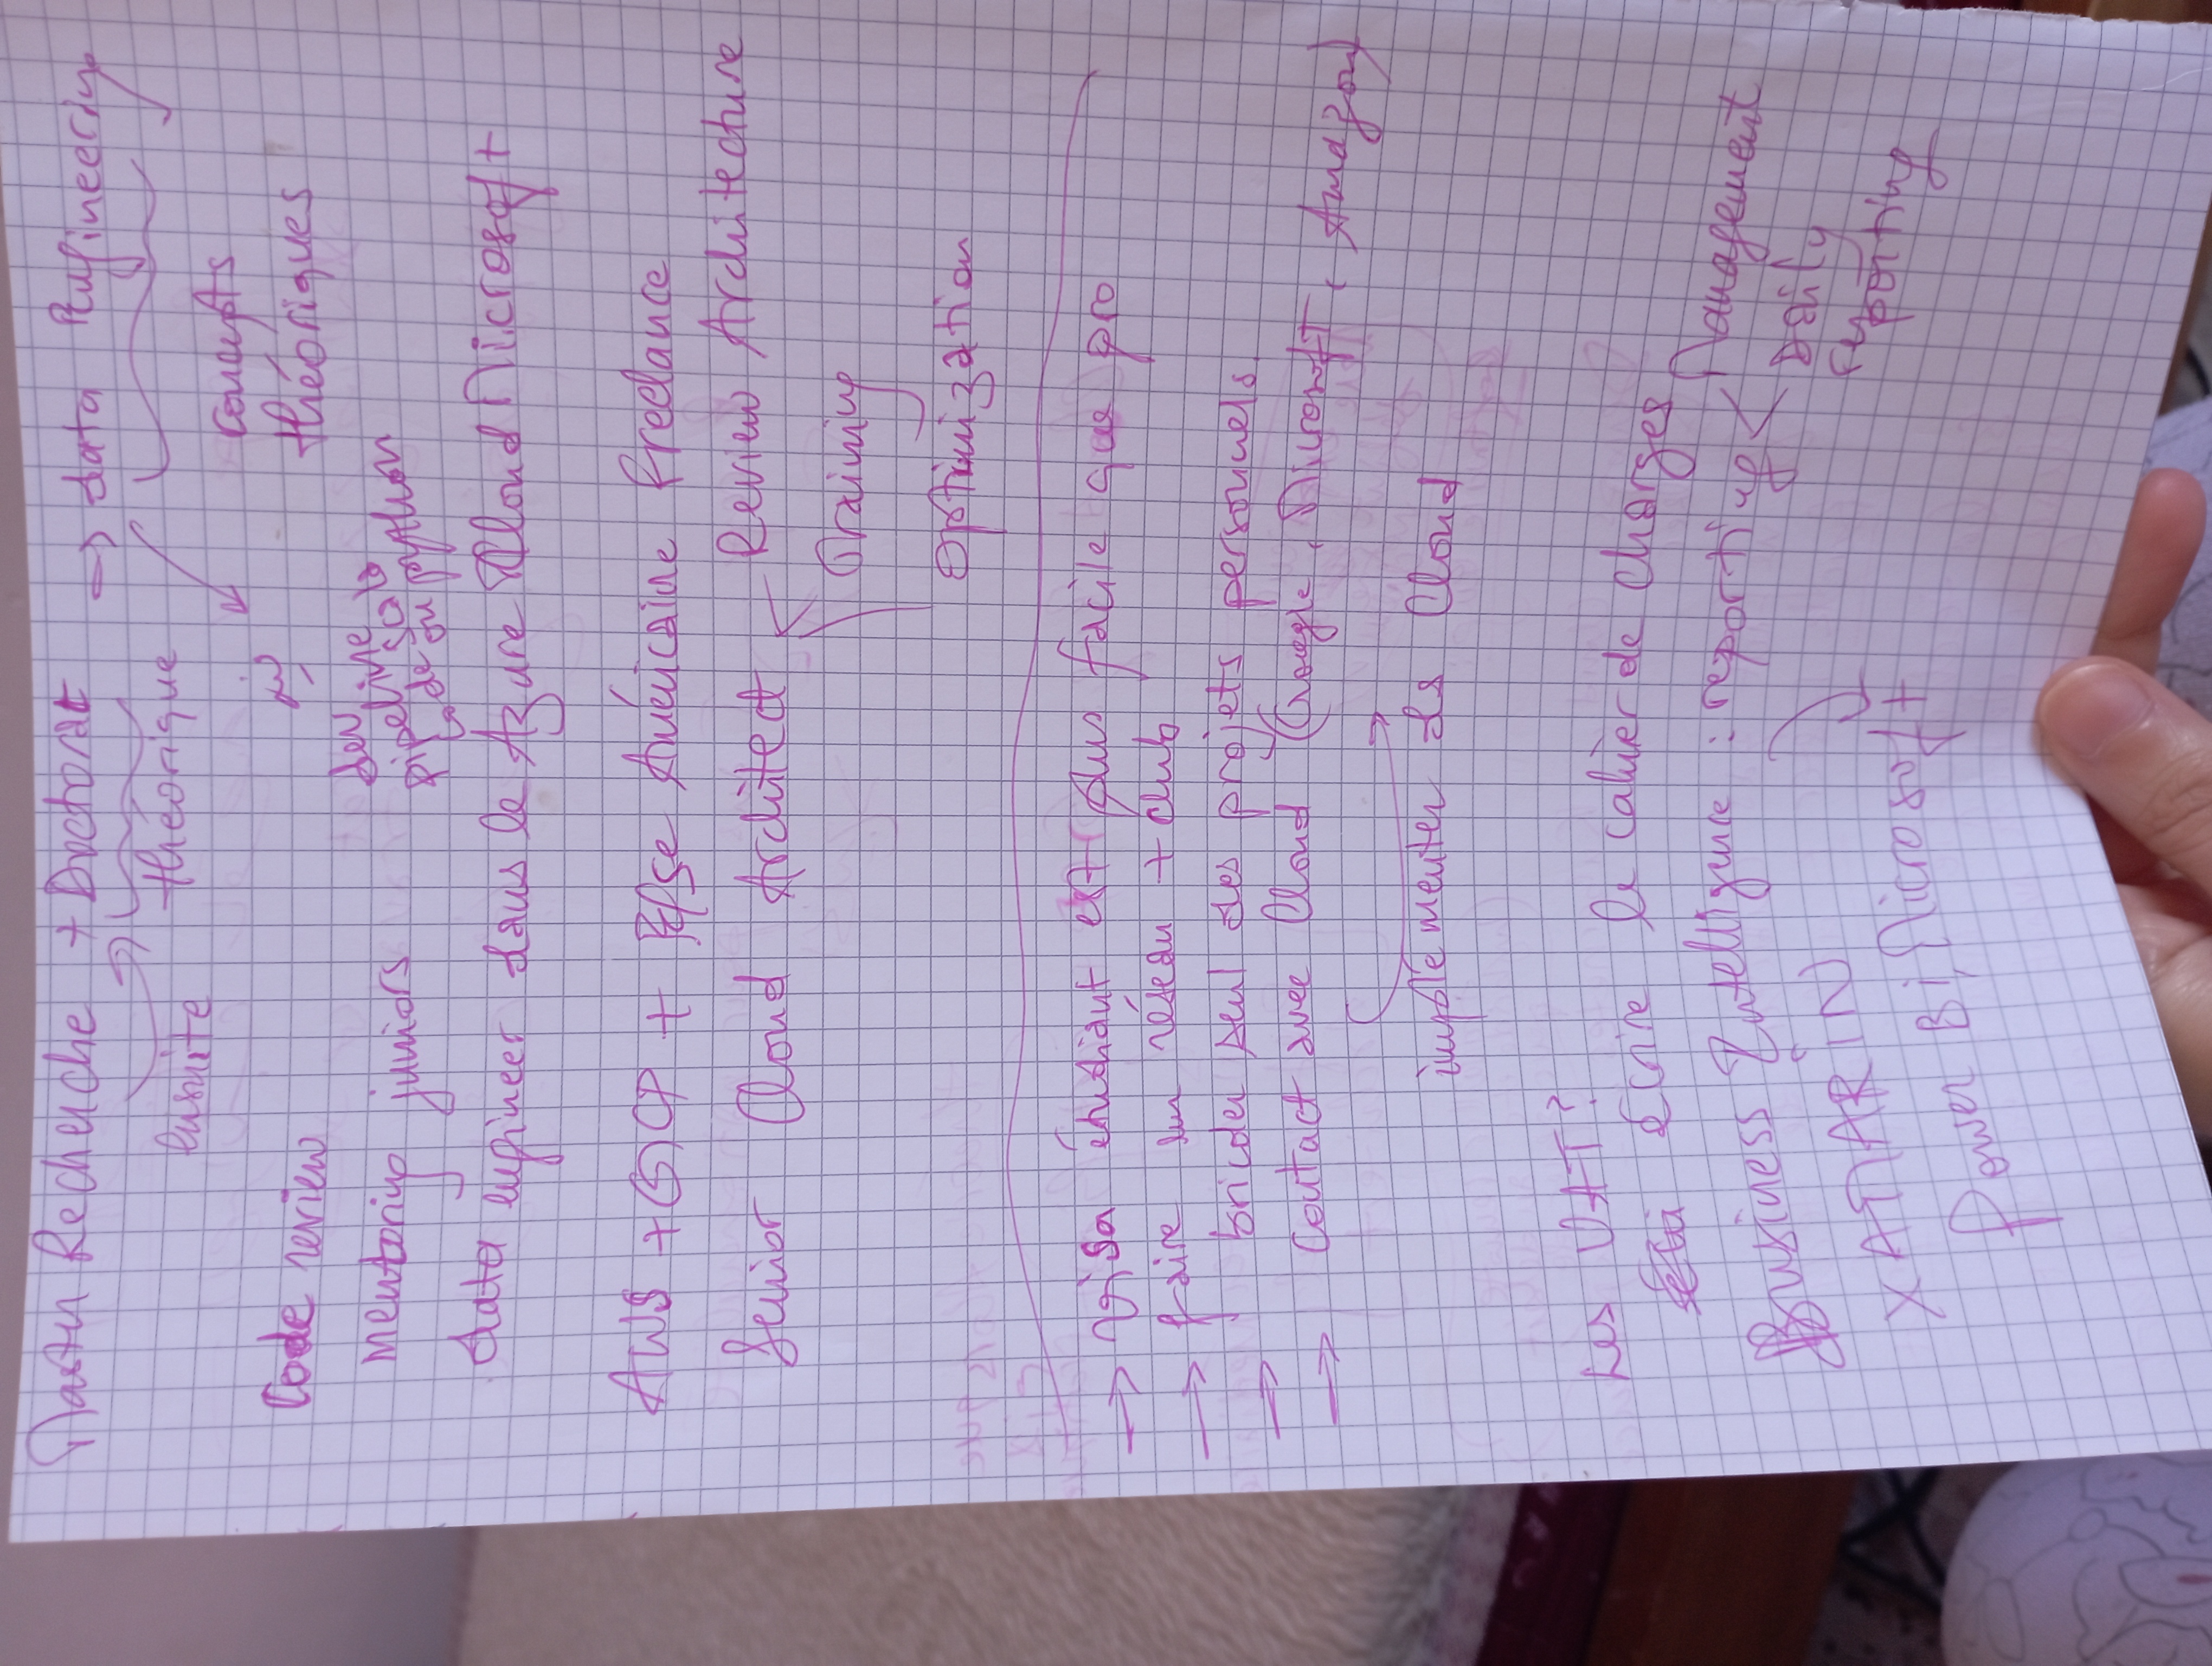 Master Recherche + Doctorat → data Engineering
ensuite théorique
concepts
théoriques
Code review
dev
pipeline scala
code ou python
mentoring juniors
data engineer dans le Azure Cloud Microsoft
AWS + GCP + Ese Américaine freelance
Senior Cloud Architect ← Review Architecture
Training
Optimization
→ visa étudiant est plus facile que pro
→ faire un réseau + club
→ bricoler seul des projets personnels
→ Contact avec Cloud (Google, Microsoft, Amazon)
implémenter ds Cloud
Les UAT?
Écrire le cahier de charges
Business Intelligence : reporting < Management
Daily
reporting
XAMARIN
Power Bi, Microsoft